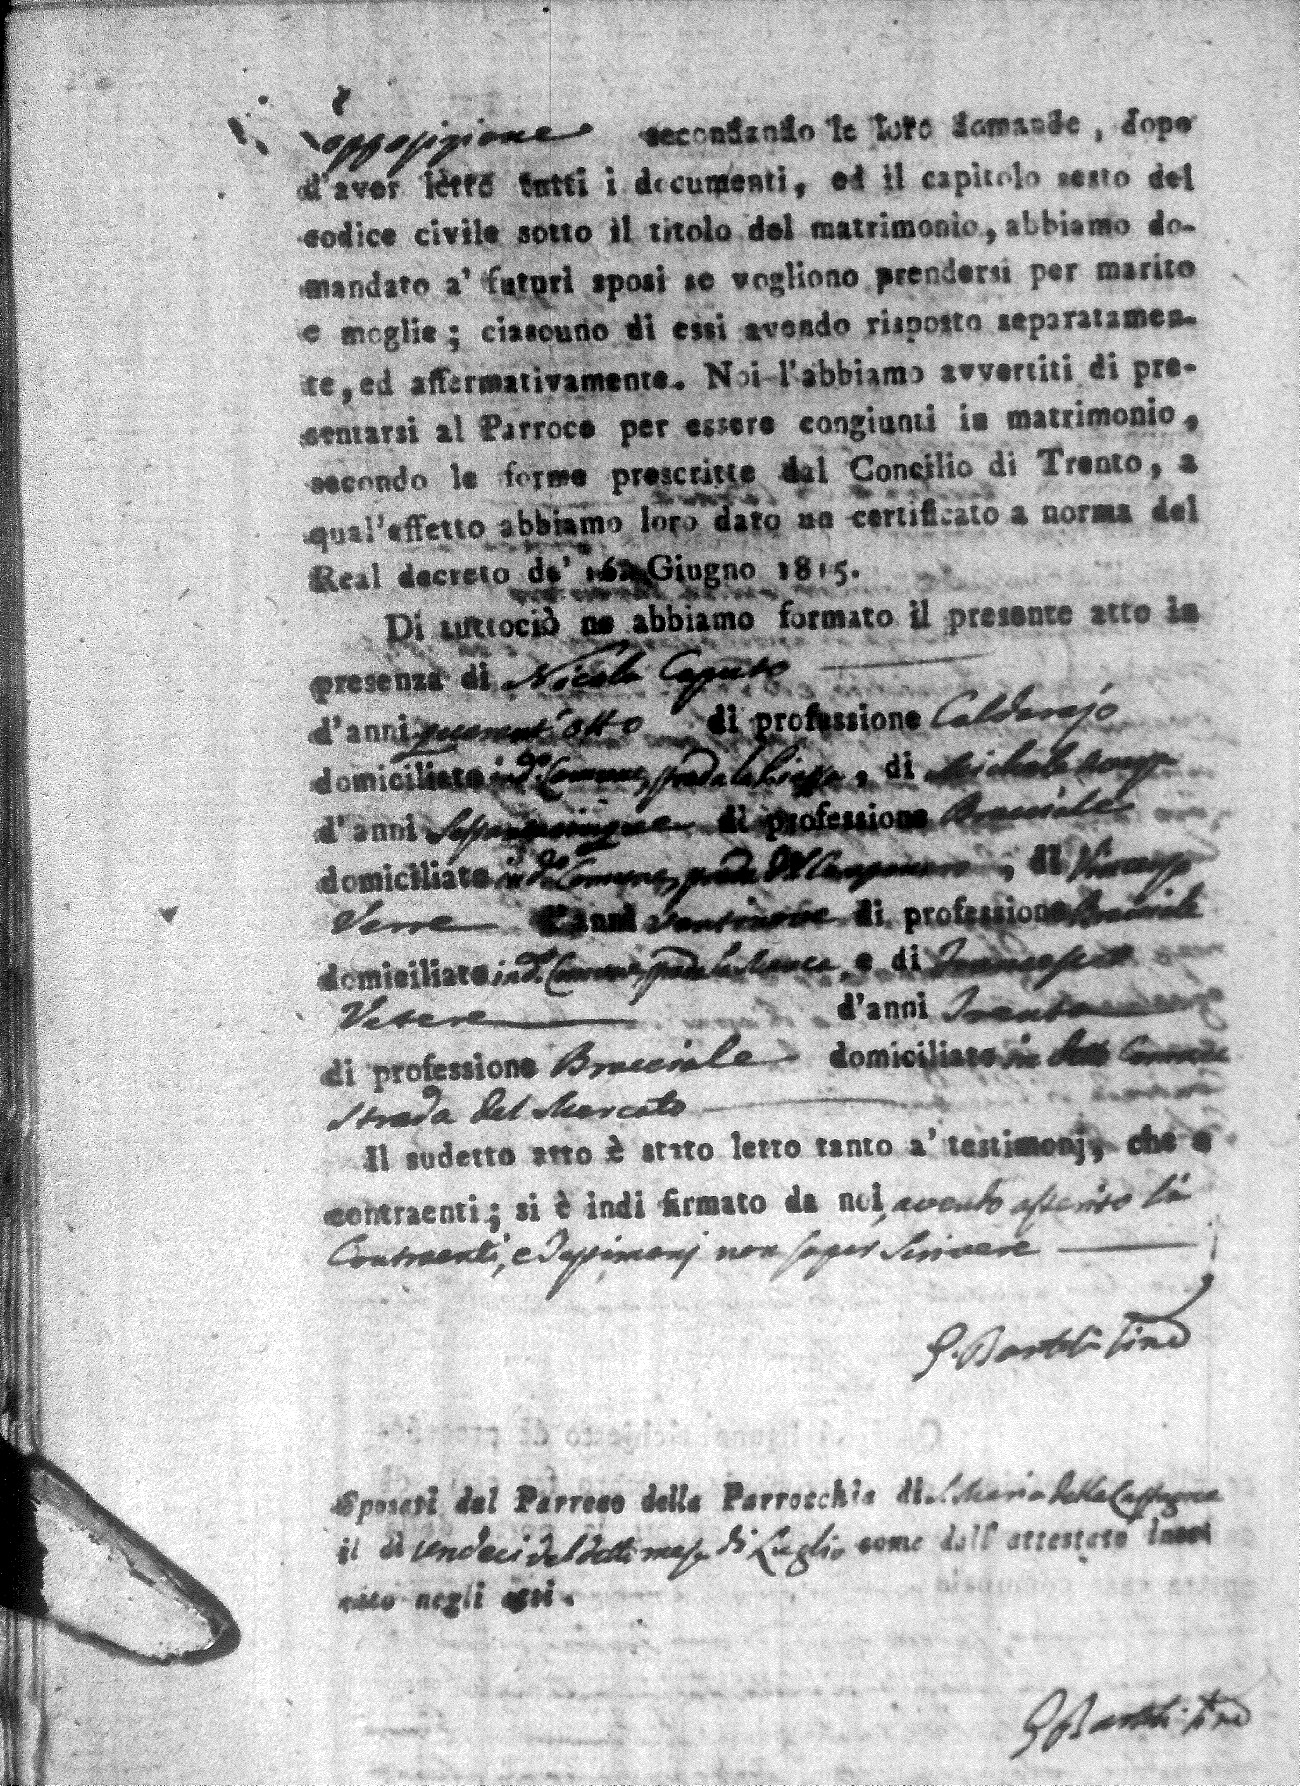 opposizione secondando le loro domande, dopo
d'aver letto tutti i documenti, ed il capitolo sesto del
codice civile sotto il titolo del matrimonio, abbiamo do-
mandato a' futuri sposi se vogliono prendersi per marito
e moglie; ciascuno di essi avendo risposto separatamen-
te, ed affermativamente. Noi l'abbiamo avvertiti di pre-
sentarsi al Parroco per essere congiunti in matrimonio,
secondo le forme prescritte dal Concilio di Trento, a
qual'effetto abbiamo loro dato un certificato a norma del
Real decreto de' 16 Giugno 1815.
Di tuttociò ne abbiamo formato il presente atto in
presenza di Nicola Caputo
d'anni quarant'otto di professione Caldarajo
domiciliato in do. Comune, strada la Piazza, di Michele
d'anni di professione Bracciale
domiciliato in do. Comune, strada del , di Vincenzo
Verre d'anni di professione Bracciale
domiciliato in do. Comune, strada la Manca, e di Francesco
Vetere d'anni Trenta
di professione Bracciale domiciliato in detto Comune
Strada del Mercato
Il sudetto atto è stato letto tanto a' testimonj, che a
contraenti; si è indi firmato da noi, avendo asserito li
Contraenti, e Testimonj non saper Scrivere
G. Bartoli Sind
Sposati dal Parroco della Parrocchia di S. Maria della
il dì undeci del detto mese di Luglio come dall' attestato inseri
nato negli atti.
G Bartoli Sind